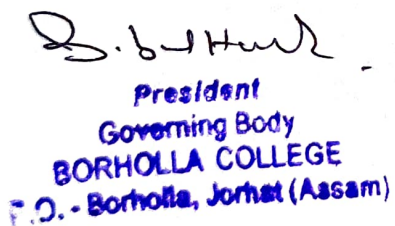 President
Governing Body
BORHOLLA COLLEGE
P.O. - Borholla, Jorhat (Assam)